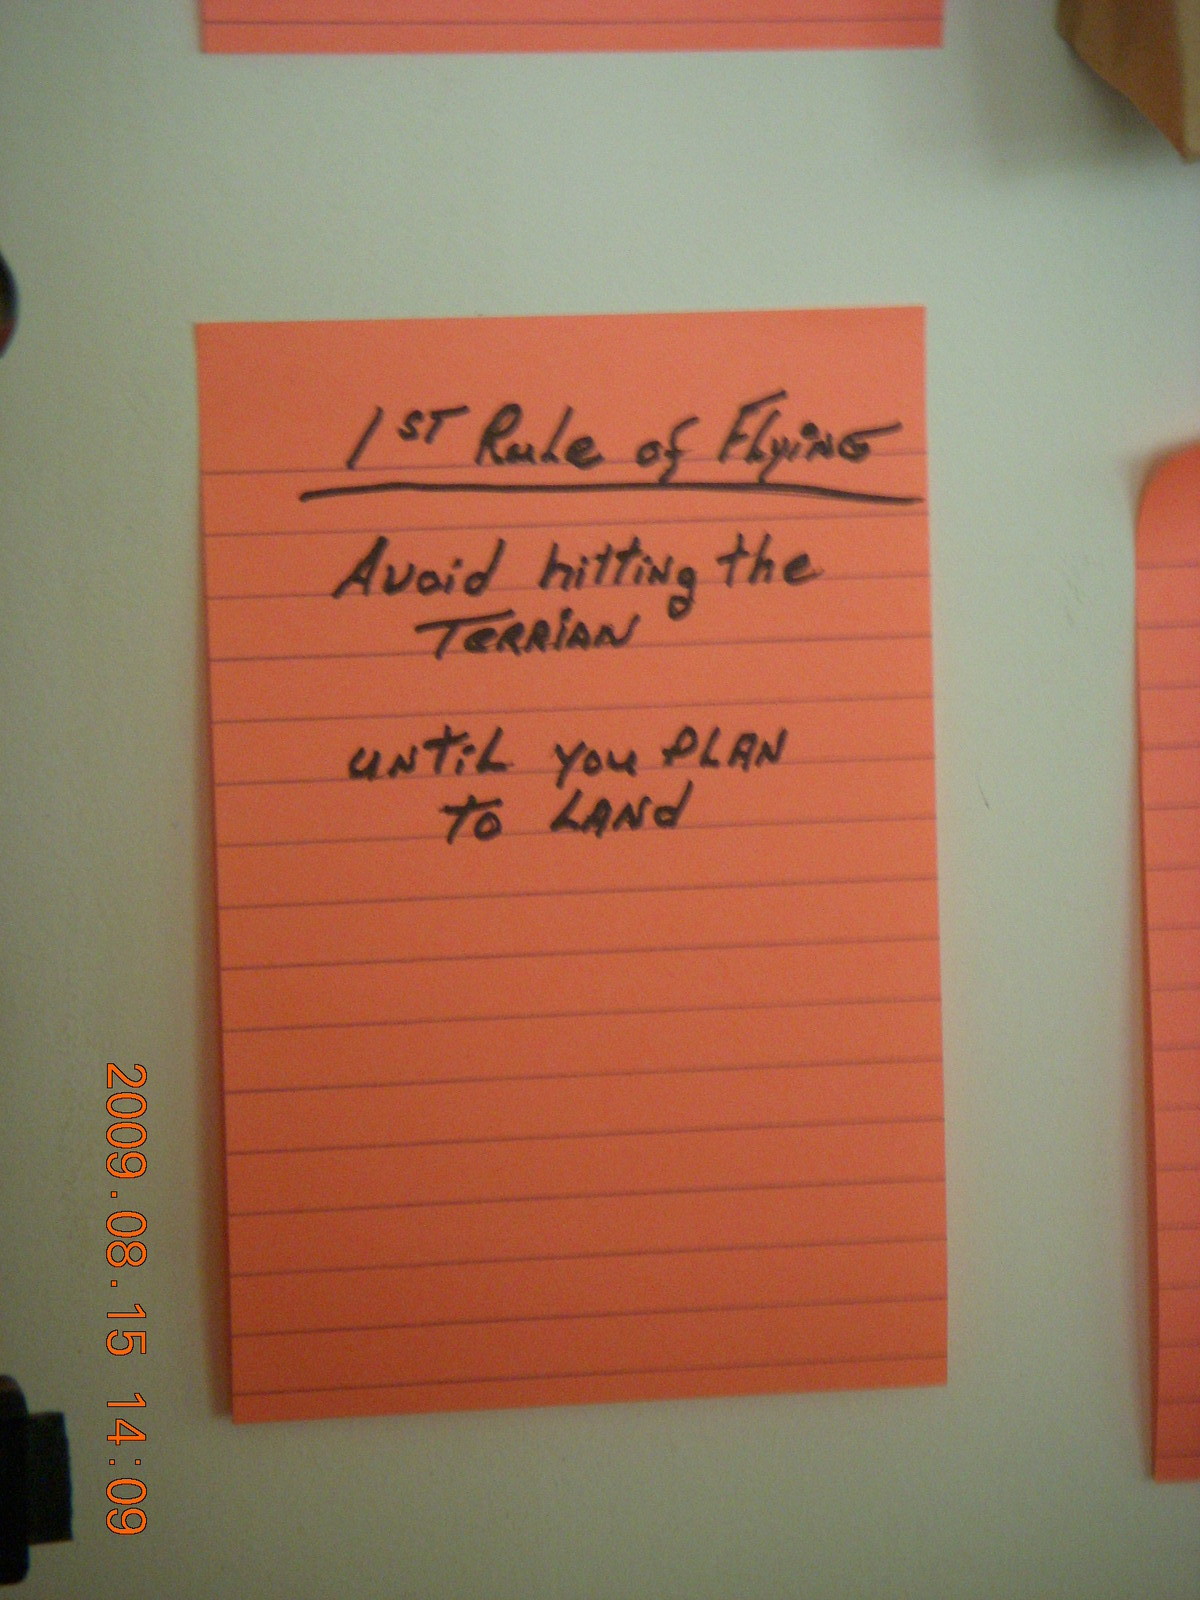 1ST Rule of Flying
Avoid hitting the
TERRIAN
UNTiL you PLAN
TO LANd
2009.08.15 14:09